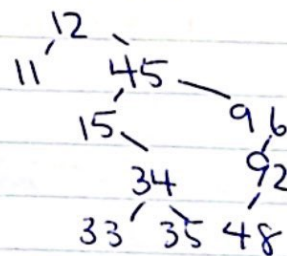 12
11 45
15 96
34 92
33 35 48